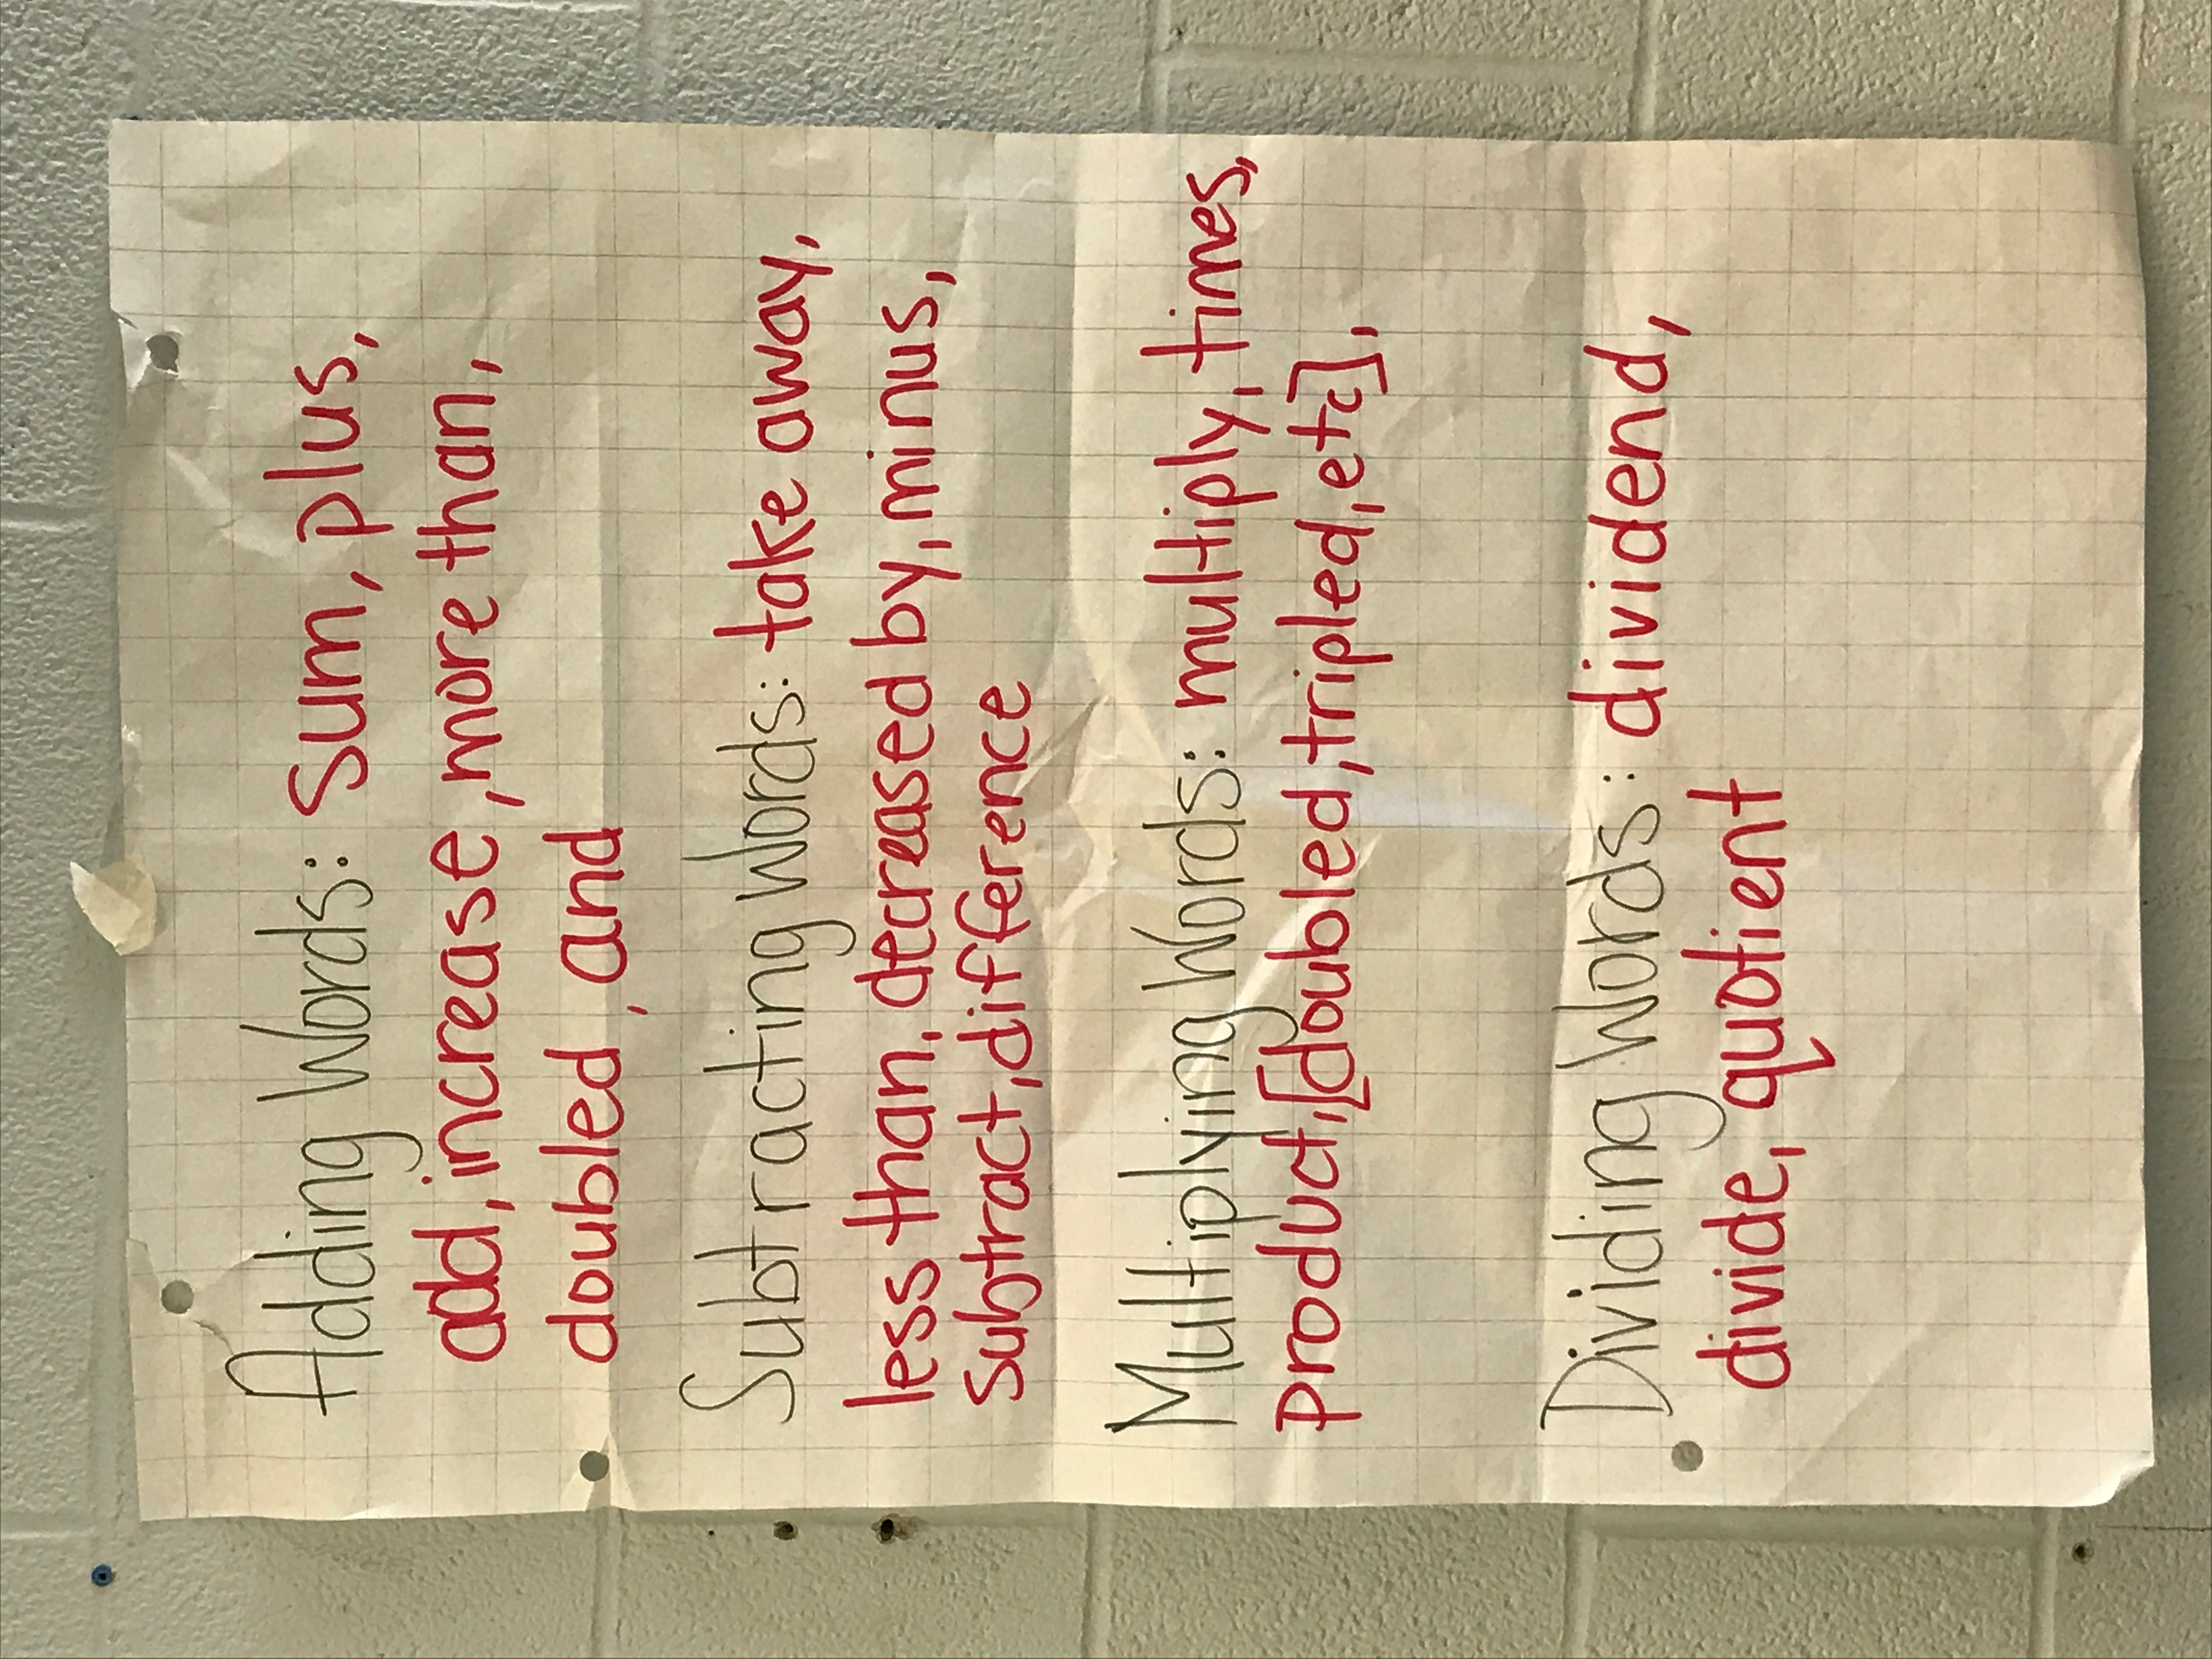 Adding Words: Sum, plus,
add, increase, more than,
doubled, and
Subtracting Words: take away,
less than, decreased by, minus,
Subtract, difference
Multiplying Words: multiply, times,
product, [doubled, tripled, etc],
Dividing Words: dividend,
divide, quotient